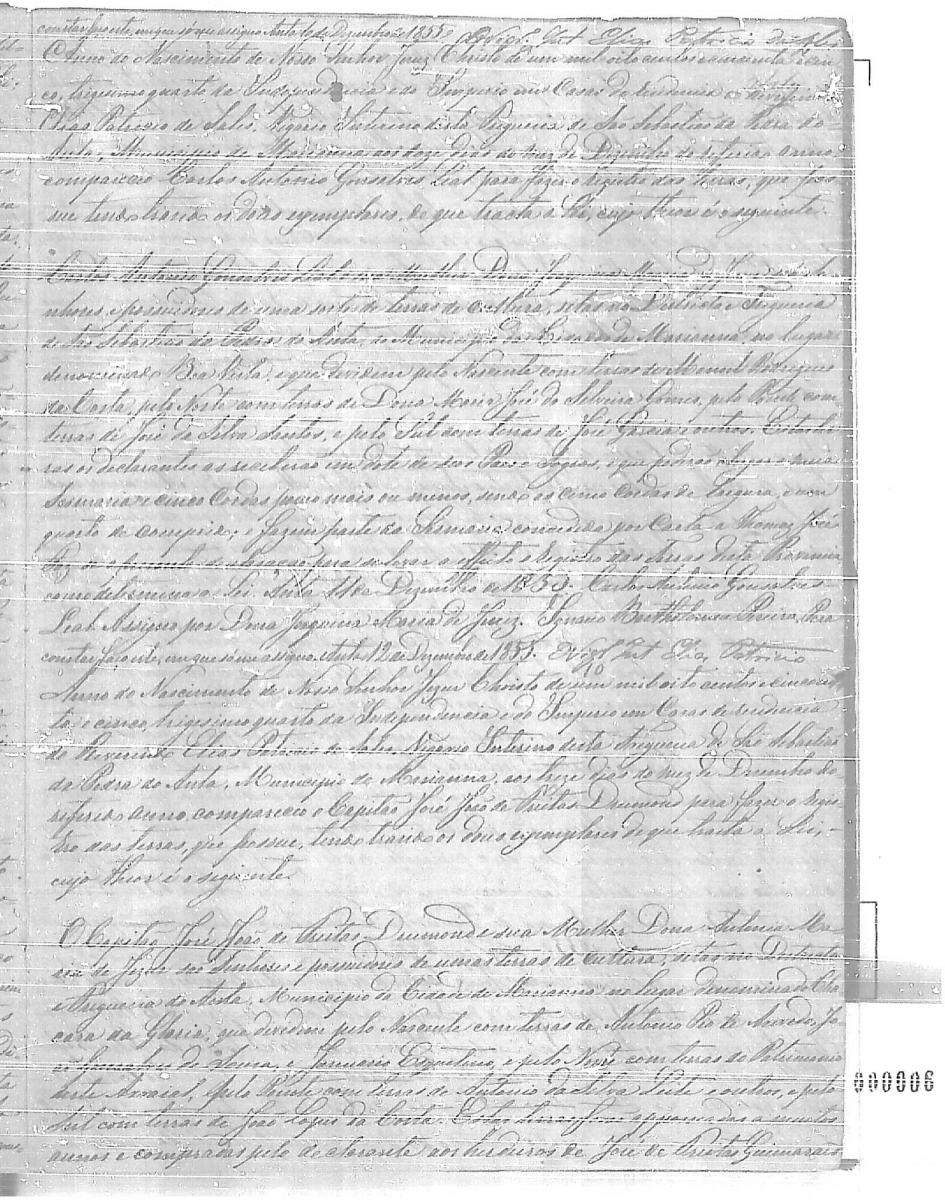 constar fiz este, em que só me assigno. Anta 10 de Dezembro de 1855. O Vigr.º Int. Elias Patricio de Sales
Anno do Nascimento de Nosso Senhor Jezus Christo de um mil oito centos e cincoenta e cin-
co, trigesimo quarto da Independencia e do Imperio em Casas de residencia do
Elias Patricio de Sales, Vigario Interino desta Freguezia de São Sebastião da Pedra do
Anta, Municipio de Marianna, aos doze dias do mez de Dezembro do referido anno,
compareceo Carlos Antonio Gonsalves Leal para fazer o registro das terras, que pos-
sue tendo trazido os dous exemplares, de que tracta a Lei, cujo theor é o seguinte.
Carlos Antonio Gonsalves Leal e sua Mulher Dona Joaquina Maria de Jezus são Se-
nhores e possuidores de uma sorte de terras de Cultura, sitas no Districto e Freguezia
de São Sebastião da Pedra do Anta, do Municipio da Cidade de Marianna, no lugar
denominado Boa Vista, e que dividem pelo Nascente com terras de Manoel Rodrigues
da Costa, pelo Norte com terras de Dona Maria José da Silveira Gomes, pelo Poente com
terras de José da Silva Santos, e pelo Sul com terras de José Garcia e outros. Estas ter-
ras os declarantes as receberão em dote de seus Paes e Sogros, e que
Sesmaria e cinco Cordas pouco mais ou menos, sendo as cinco Cordas de largura, e um
quarto de comprido; e fazem parte da Sesmaria concedida por Carta a Thomaz José
declaração para se levar a effeito o Registro das terras desta Provincia
como determina a Lei. Anta 11 de Dezembro de 1855. Carlos Antonio Gonsalves
Leal. Assigno por Dona Joaquina Maria de Jezus. Ignacio Bartholomeu Pereira. Para
constar fiz este, em que só me assigno. Anta 12 de Dezembro de 1855. O Vigr.º Int. Elias Patricio
Anno do Nascimento de Nosso Senhor Jezus Christo de um mil oito centos e cincoen-
ta e cinco, trigesimo quarto da Independencia e do Imperio em Casas de residencia
do Reverendo Elias Patricio de Sales, Vigario Interino desta Freguezia de São Sebastião
da Pedra do Anta, Municipio de Marianna, aos treze dias do mez de Dezembro do
referido anno, compareceo o Capitão José João de Freitas Drumond para fazer o regis-
tro das terras, que possue, tendo trazido os dous exemplares de que tracta a Lei,
cujo theor é o seguinte.
O Capitão José João de Freitas Drumond e sua Mulher Dona Antonia Ma-
ria de Jezus são Senhores e possuidores de umas terras de Cultura, sitas no Districto
e Freguezia do Anta, Municipio da Cidade de Marianna no lugar denominado Cha-
cara da Gloria, que dividem pelo Nascente com terras de Antonio Pio de Azevedo, Jo-
de Souza, e Januario, e pelo Norte com terras do Patrimonio
deste Arraial, e pelo Poente com terras de Antonio da Silva Leite e outros, e pelo
Sul com terras de João Lopes da Costa. Estas terras a muitos
annos e compradas pelo declarante aos herdeiros de José de Freitas Guimarães
000006